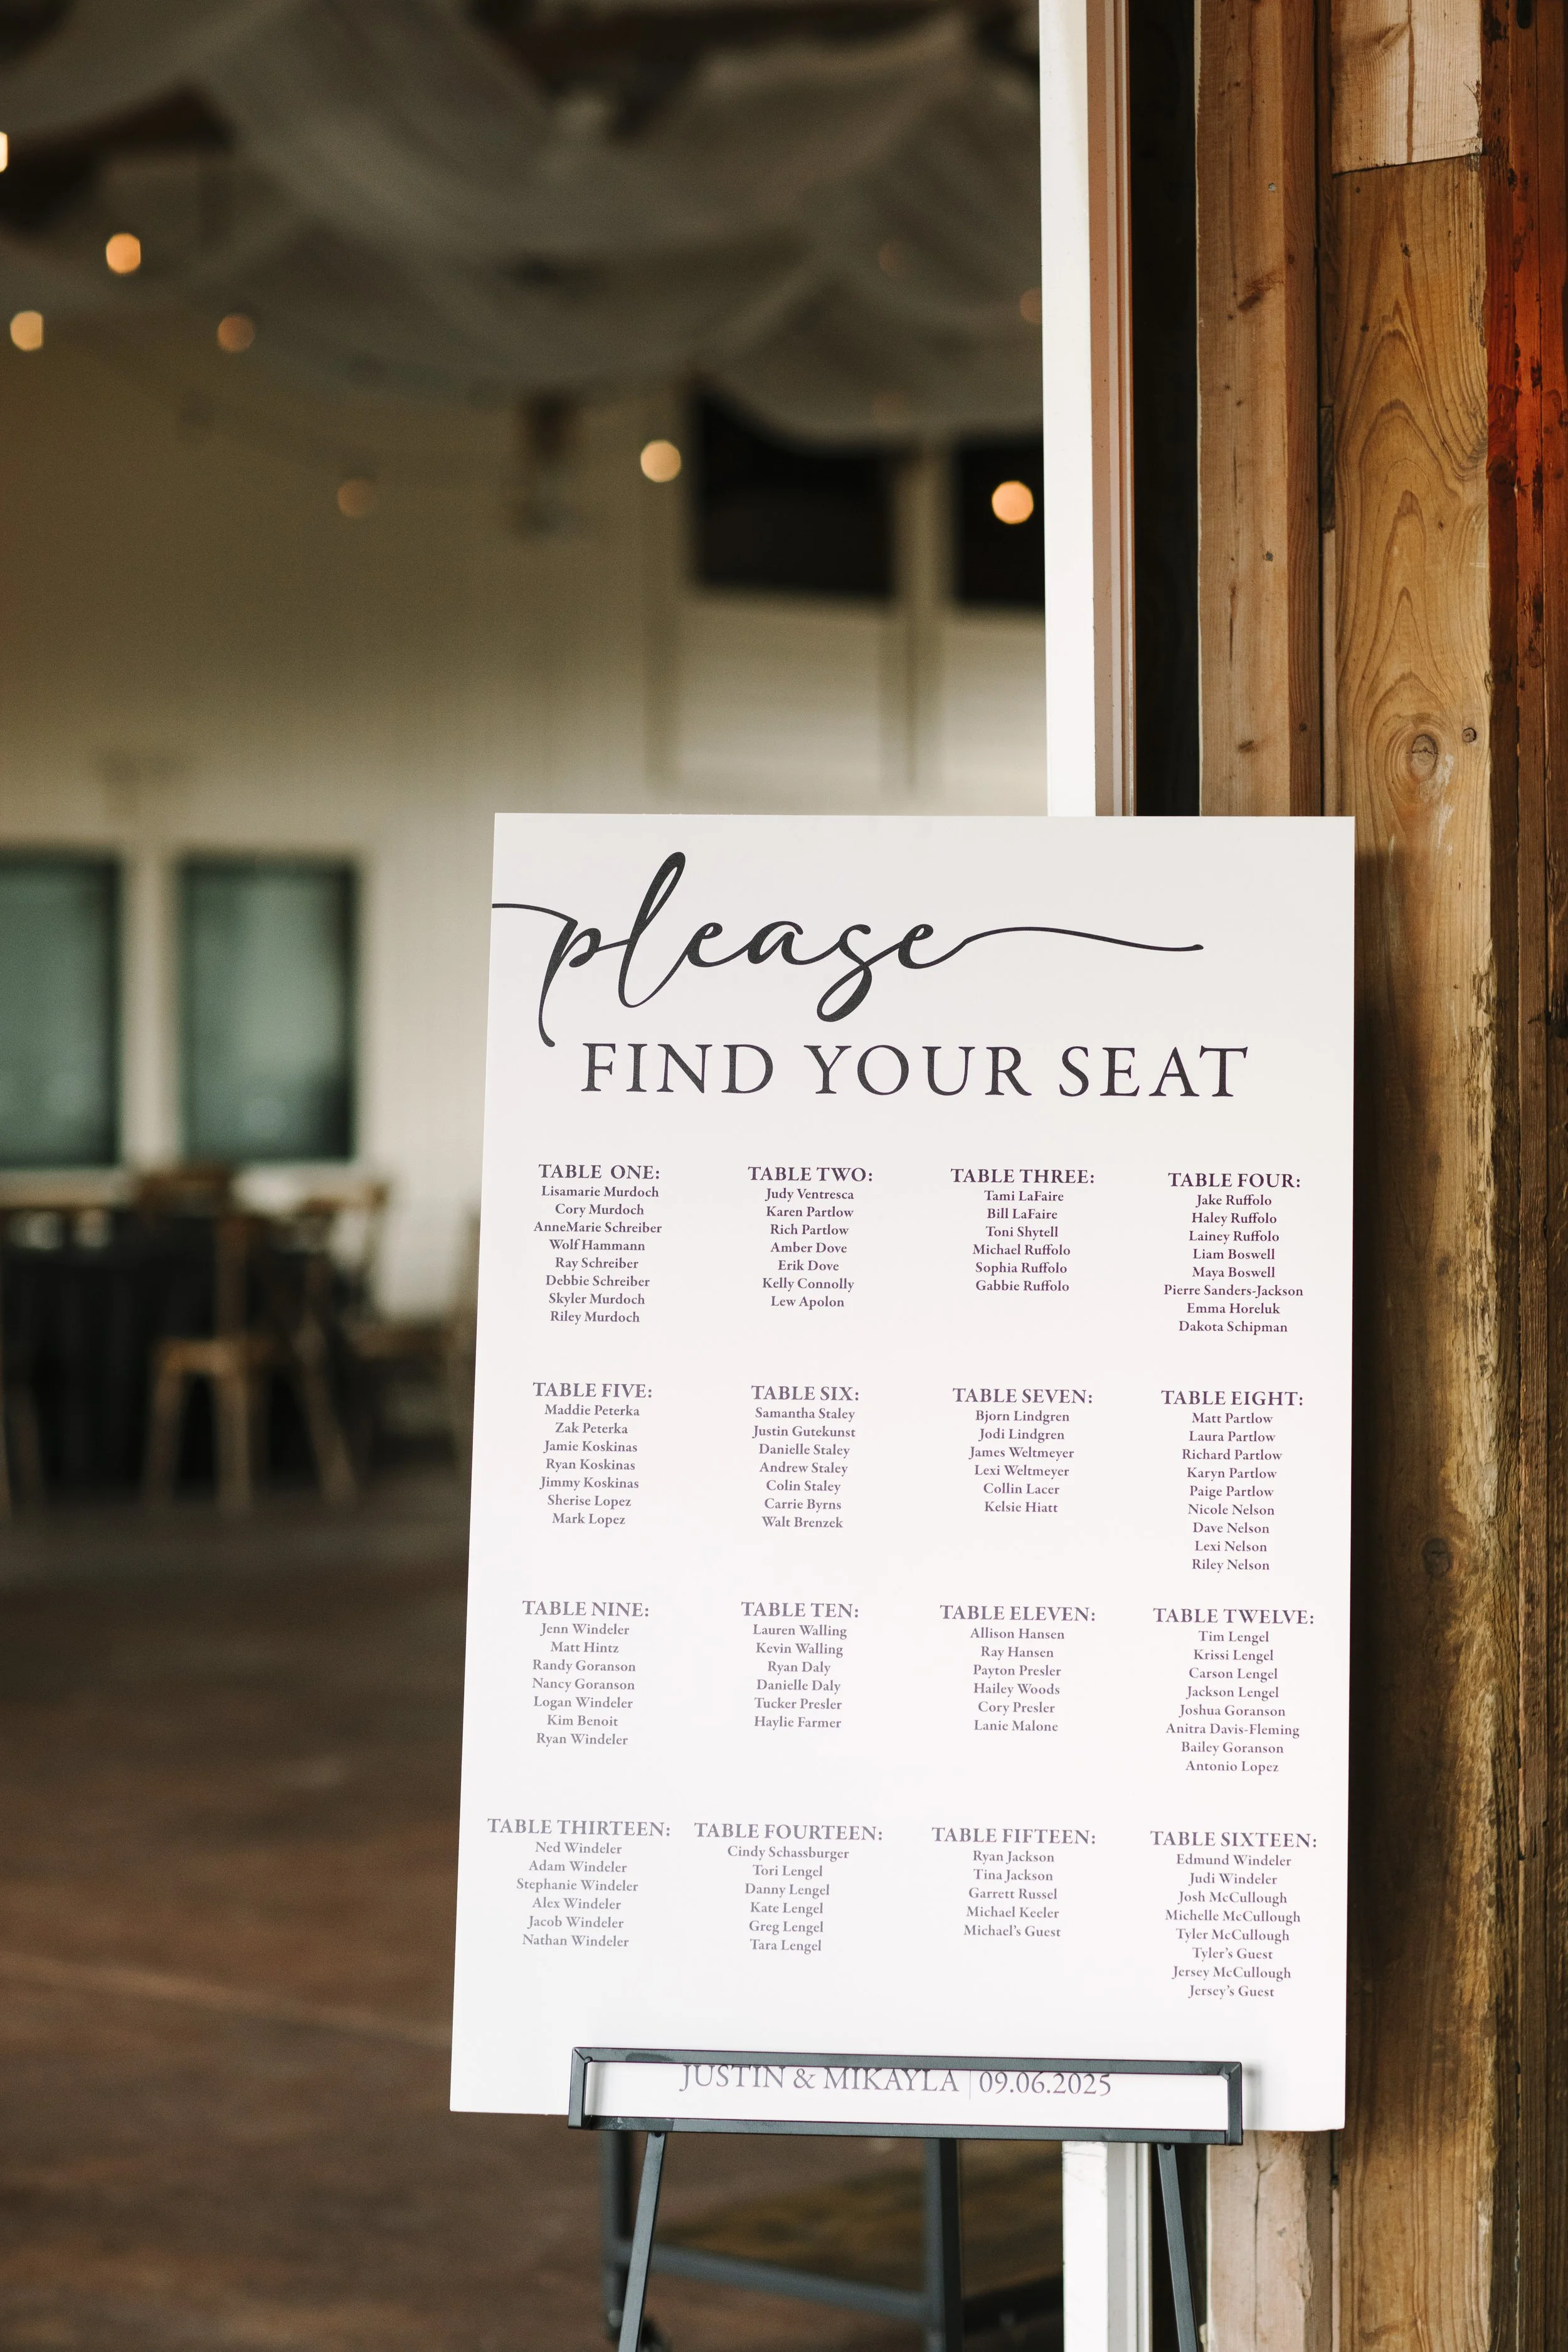 please
FIND YOUR SEAT
TABLE ONE:
Lisamarie Murdoch
Cory Murdoch
AnneMarie Schreiber
Wolf Hammann
Ray Schreiber
Debbie Schreiber
Skyler Murdoch
Riley Murdoch
TABLE TWO:
Judy Ventresca
Karen Partlow
Rich Partlow
Amber Dove
Erik Dove
Kelly Connolly
Lew Apolon
TABLE THREE:
Tami LaFaire
Bill LaFaire
Toni Shytell
Michael Ruffolo
Sophia Ruffolo
Gabbie Ruffolo
TABLE FOUR:
Jake Ruffolo
Haley Ruffolo
Lainey Ruffolo
Liam Boswell
Maya Boswell
Pierre Sanders-Jackson
Emma Horeluk
Dakota Schipman
TABLE FIVE:
Maddie Peterka
Zak Peterka
Jamie Koskinas
Ryan Koskinas
Jimmy Koskinas
Sherise Lopez
Mark Lopez
TABLE SIX:
Samantha Staley
Justin Gutekunst
Danielle Staley
Andrew Staley
Colin Staley
Carrie Byrns
Walt Brenzek
TABLE SEVEN:
Bjorn Lindgren
Jodi Lindgren
James Weltmeyer
Lexi Weltmeyer
Collin Lacer
Kelsie Hiatt
TABLE EIGHT:
Matt Partlow
Laura Partlow
Richard Partlow
Karyn Partlow
Paige Partlow
Nicole Nelson
Dave Nelson
Lexi Nelson
Riley Nelson
TABLE NINE:
Jenn Windeler
Matt Hintz
Randy Goranson
Nancy Goranson
Logan Windeler
Kim Benoit
Ryan Windeler
TABLE TEN:
Lauren Walling
Kevin Walling
Ryan Daly
Danielle Daly
Tucker Presler
Haylie Farmer
TABLE ELEVEN:
Allison Hansen
Ray Hansen
Payton Presler
Hailey Woods
Cory Presler
Lanie Malone
TABLE TWELVE:
Tim Lengel
Krissi Lengel
Carson Lengel
Jackson Lengel
Joshua Goranson
Anitra Davis-Fleming
Bailey Goranson
Antonio Lopez
TABLE THIRTEEN:
Ned Windeler
Adam Windeler
Stephanie Windeler
Alex Windeler
Jacob Windeler
Nathan Windeler
TABLE FOURTEEN:
Cindy Schassburger
Tori Lengel
Danny Lengel
Kate Lengel
Greg Lengel
Tara Lengel
TABLE FIFTEEN:
Ryan Jackson
Tina Jackson
Garrett Russel
Michael Keeler
Michael's Guest
TABLE SIXTEEN:
Edmund Windeler
Judi Windeler
Josh McCullough
Michelle McCullough
Tyler McCullough
Tyler's Guest
Jersey McCullough
Jersey's Guest
JUSTIN & MIKAYLA | 09.06.2025